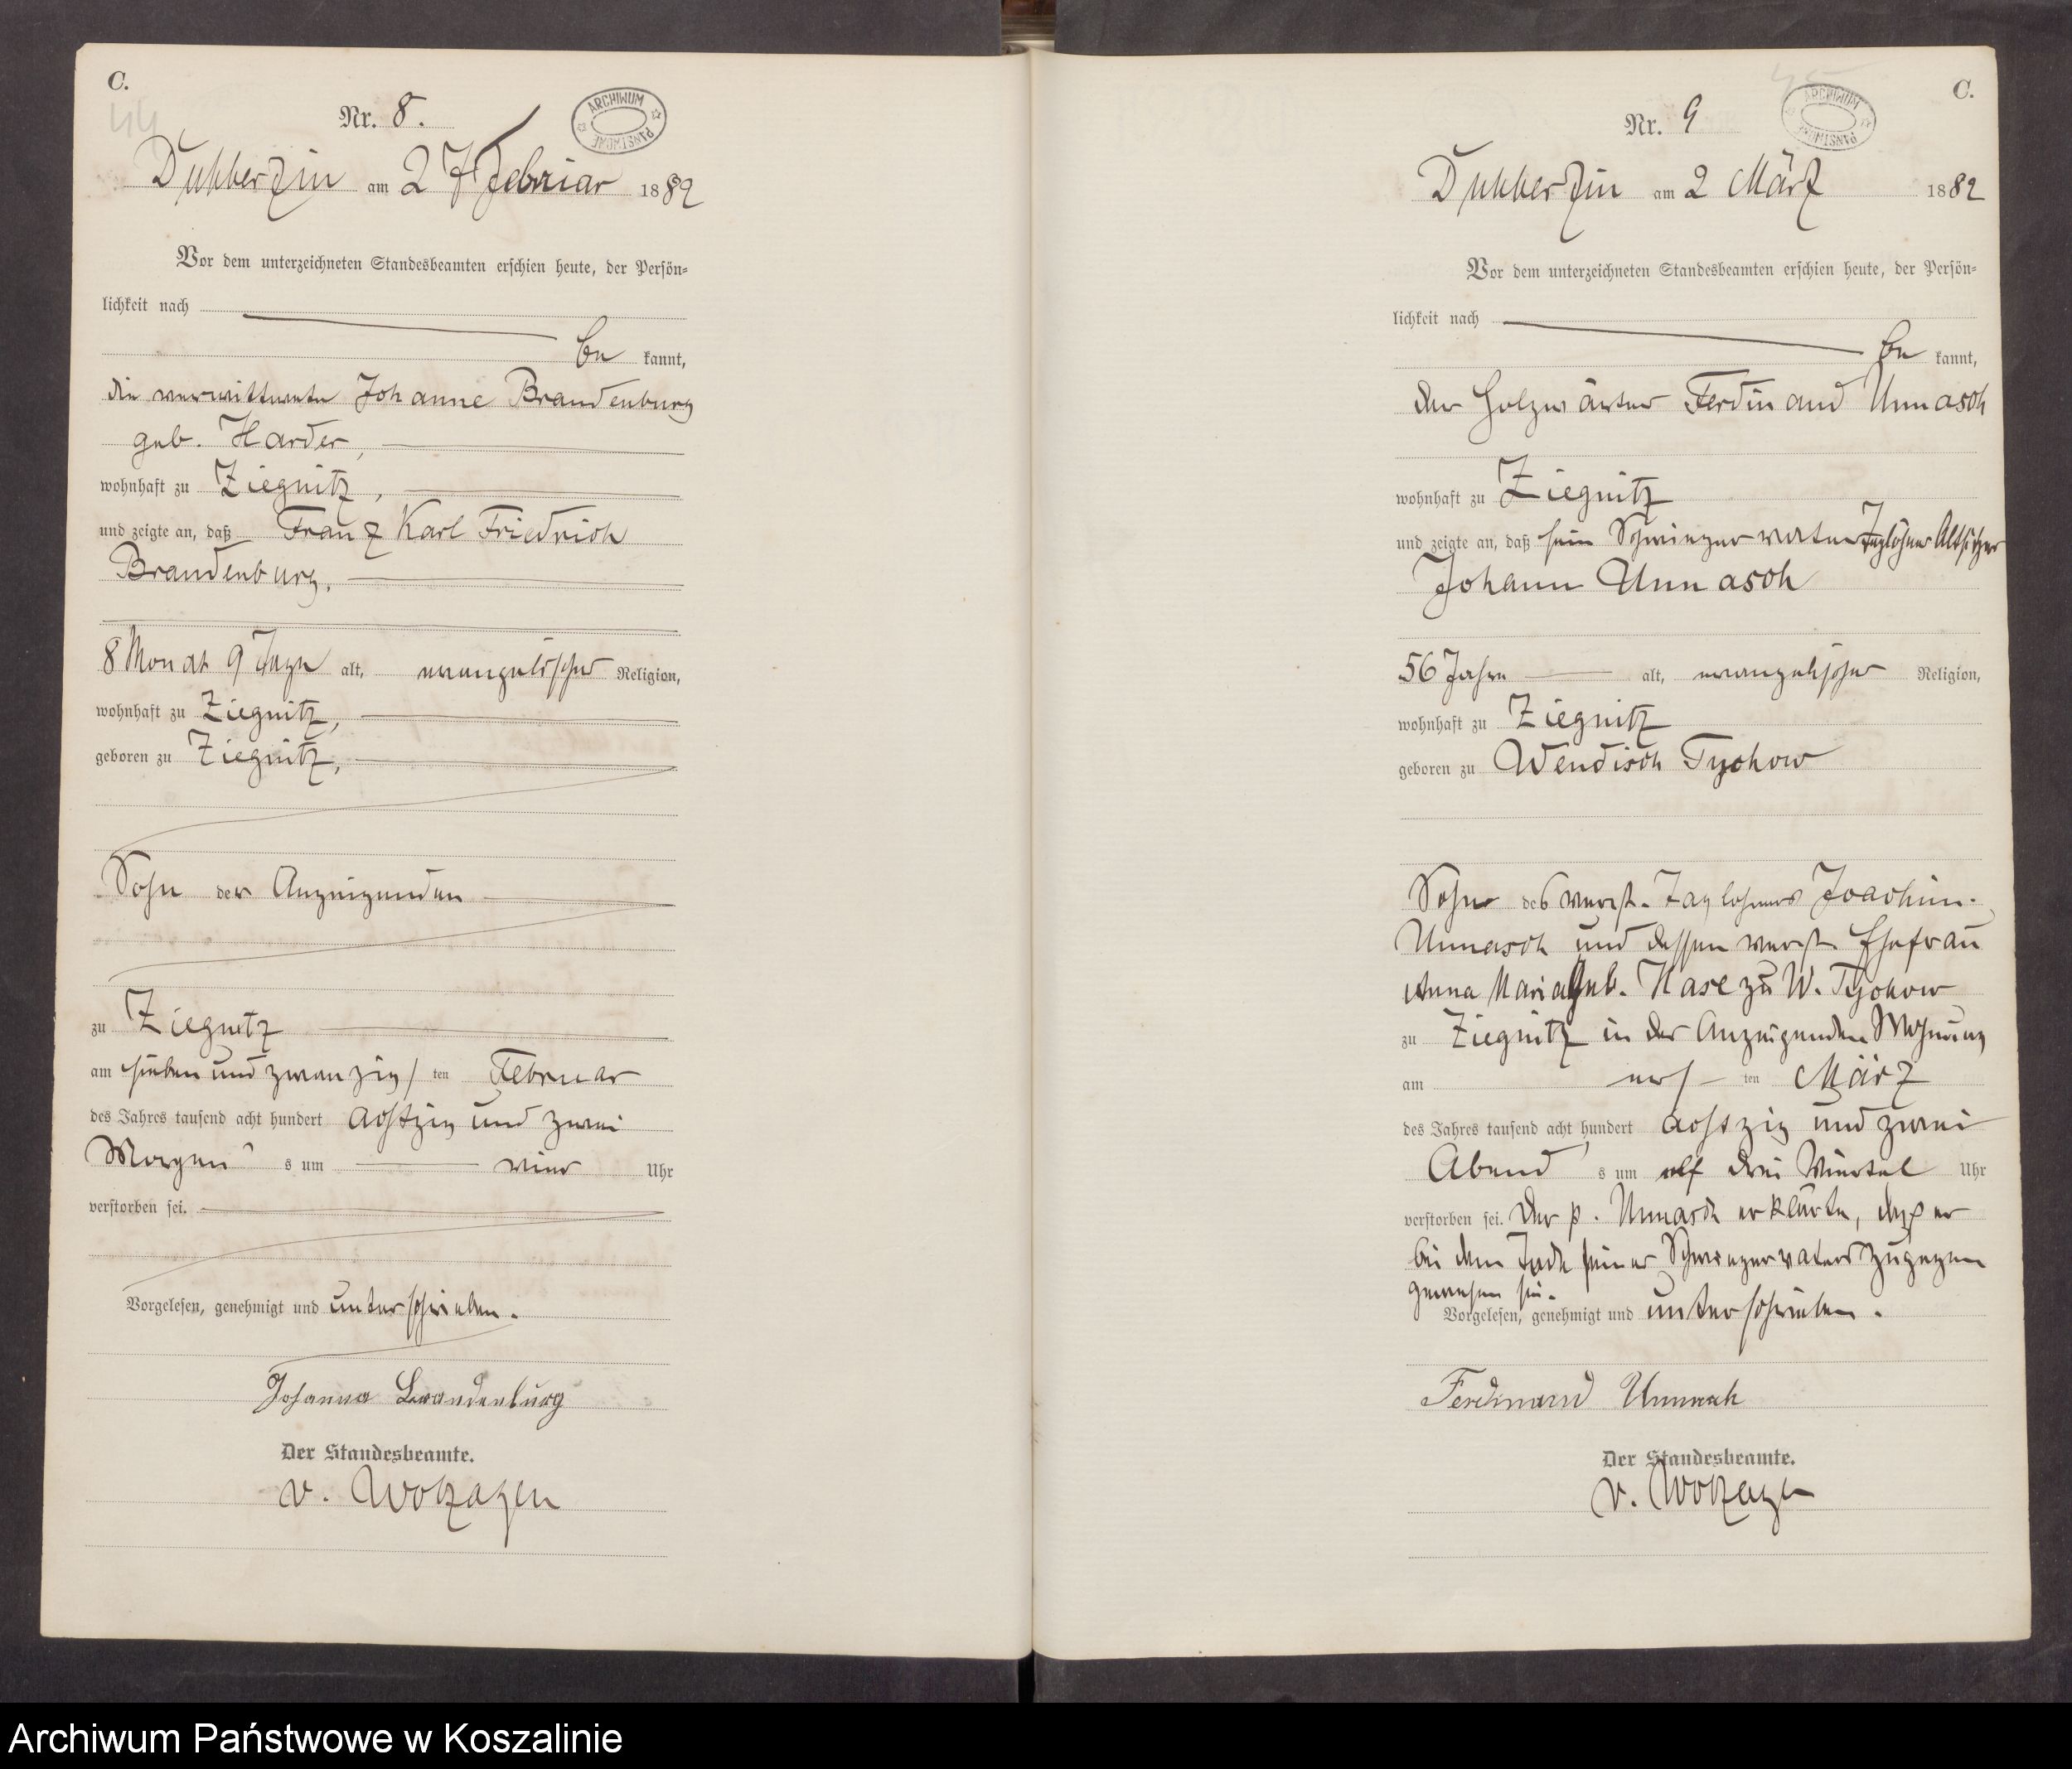 C.
44
Nr. 8.
ARCHIWUM PAŃSTWOWE
Dubberzin am 27 Februar 1882
Vor dem unterzeichneten Standesbeamten erschien heute, der Persön-
lichkeit nach
be kannt,
die verwittwete Johanne Brandenburg
geb. Harder,
wohnhaft zu Ziegnitz,
und zeigte an, daß Franz Karl Friedrich
Brandenburg,
8 Monat 9 Tage alt, evangelischer Religion,
wohnhaft zu Ziegnitz,
geboren zu Ziegnitz,
Sohn der Anzeigenden
zu Ziegnitz
am sieben und zwanzigs ten Februar
des Jahres tausend acht hundert achtzig und zwei
Morgen s um vier Uhr
verstorben sei.
Vorgelesen, genehmigt und unterschrieben.
Johanna Brandenburg
Der Standesbeamte.
v. Wolzogen
C.
45
Nr. 9
ARCHIWUM PAŃSTWOWE
Dubberzin am 2 März 1882
Vor dem unterzeichneten Standesbeamten erschien heute, der Persön-
lichkeit nach
be kannt,
der Holzwärter Ferdinand Unnasch
wohnhaft zu Ziegnitz
und zeigte an, daß sein Schwiegervater Taglöhner Altsitzer
Johann Unnasch
56 Jahre alt, evangelischer Religion,
wohnhaft zu Ziegnitz
geboren zu Wendisch Tychow
Sohn des verst. Taglöhners Joachim
Unnasch und dessen verst. Ehefrau
Anna Maria geb. Kase zu W. Tychow
zu Ziegnitz in der Anzeigenden Wohnung
am ers ten März
des Jahres tausend acht hundert achtzig und zwei
Abend s um elf drei Viertel Uhr
verstorben sei. Der p. Unnasch erklärte, daß er
bei dem Tode seines Schwiegervaters zugegen
gewesen sei.
Vorgelesen, genehmigt und unterschrieben.
Ferdinand Unnasch
Der Standesbeamte.
v. Wolzogen
Archiwum Państwowe w Koszalinie